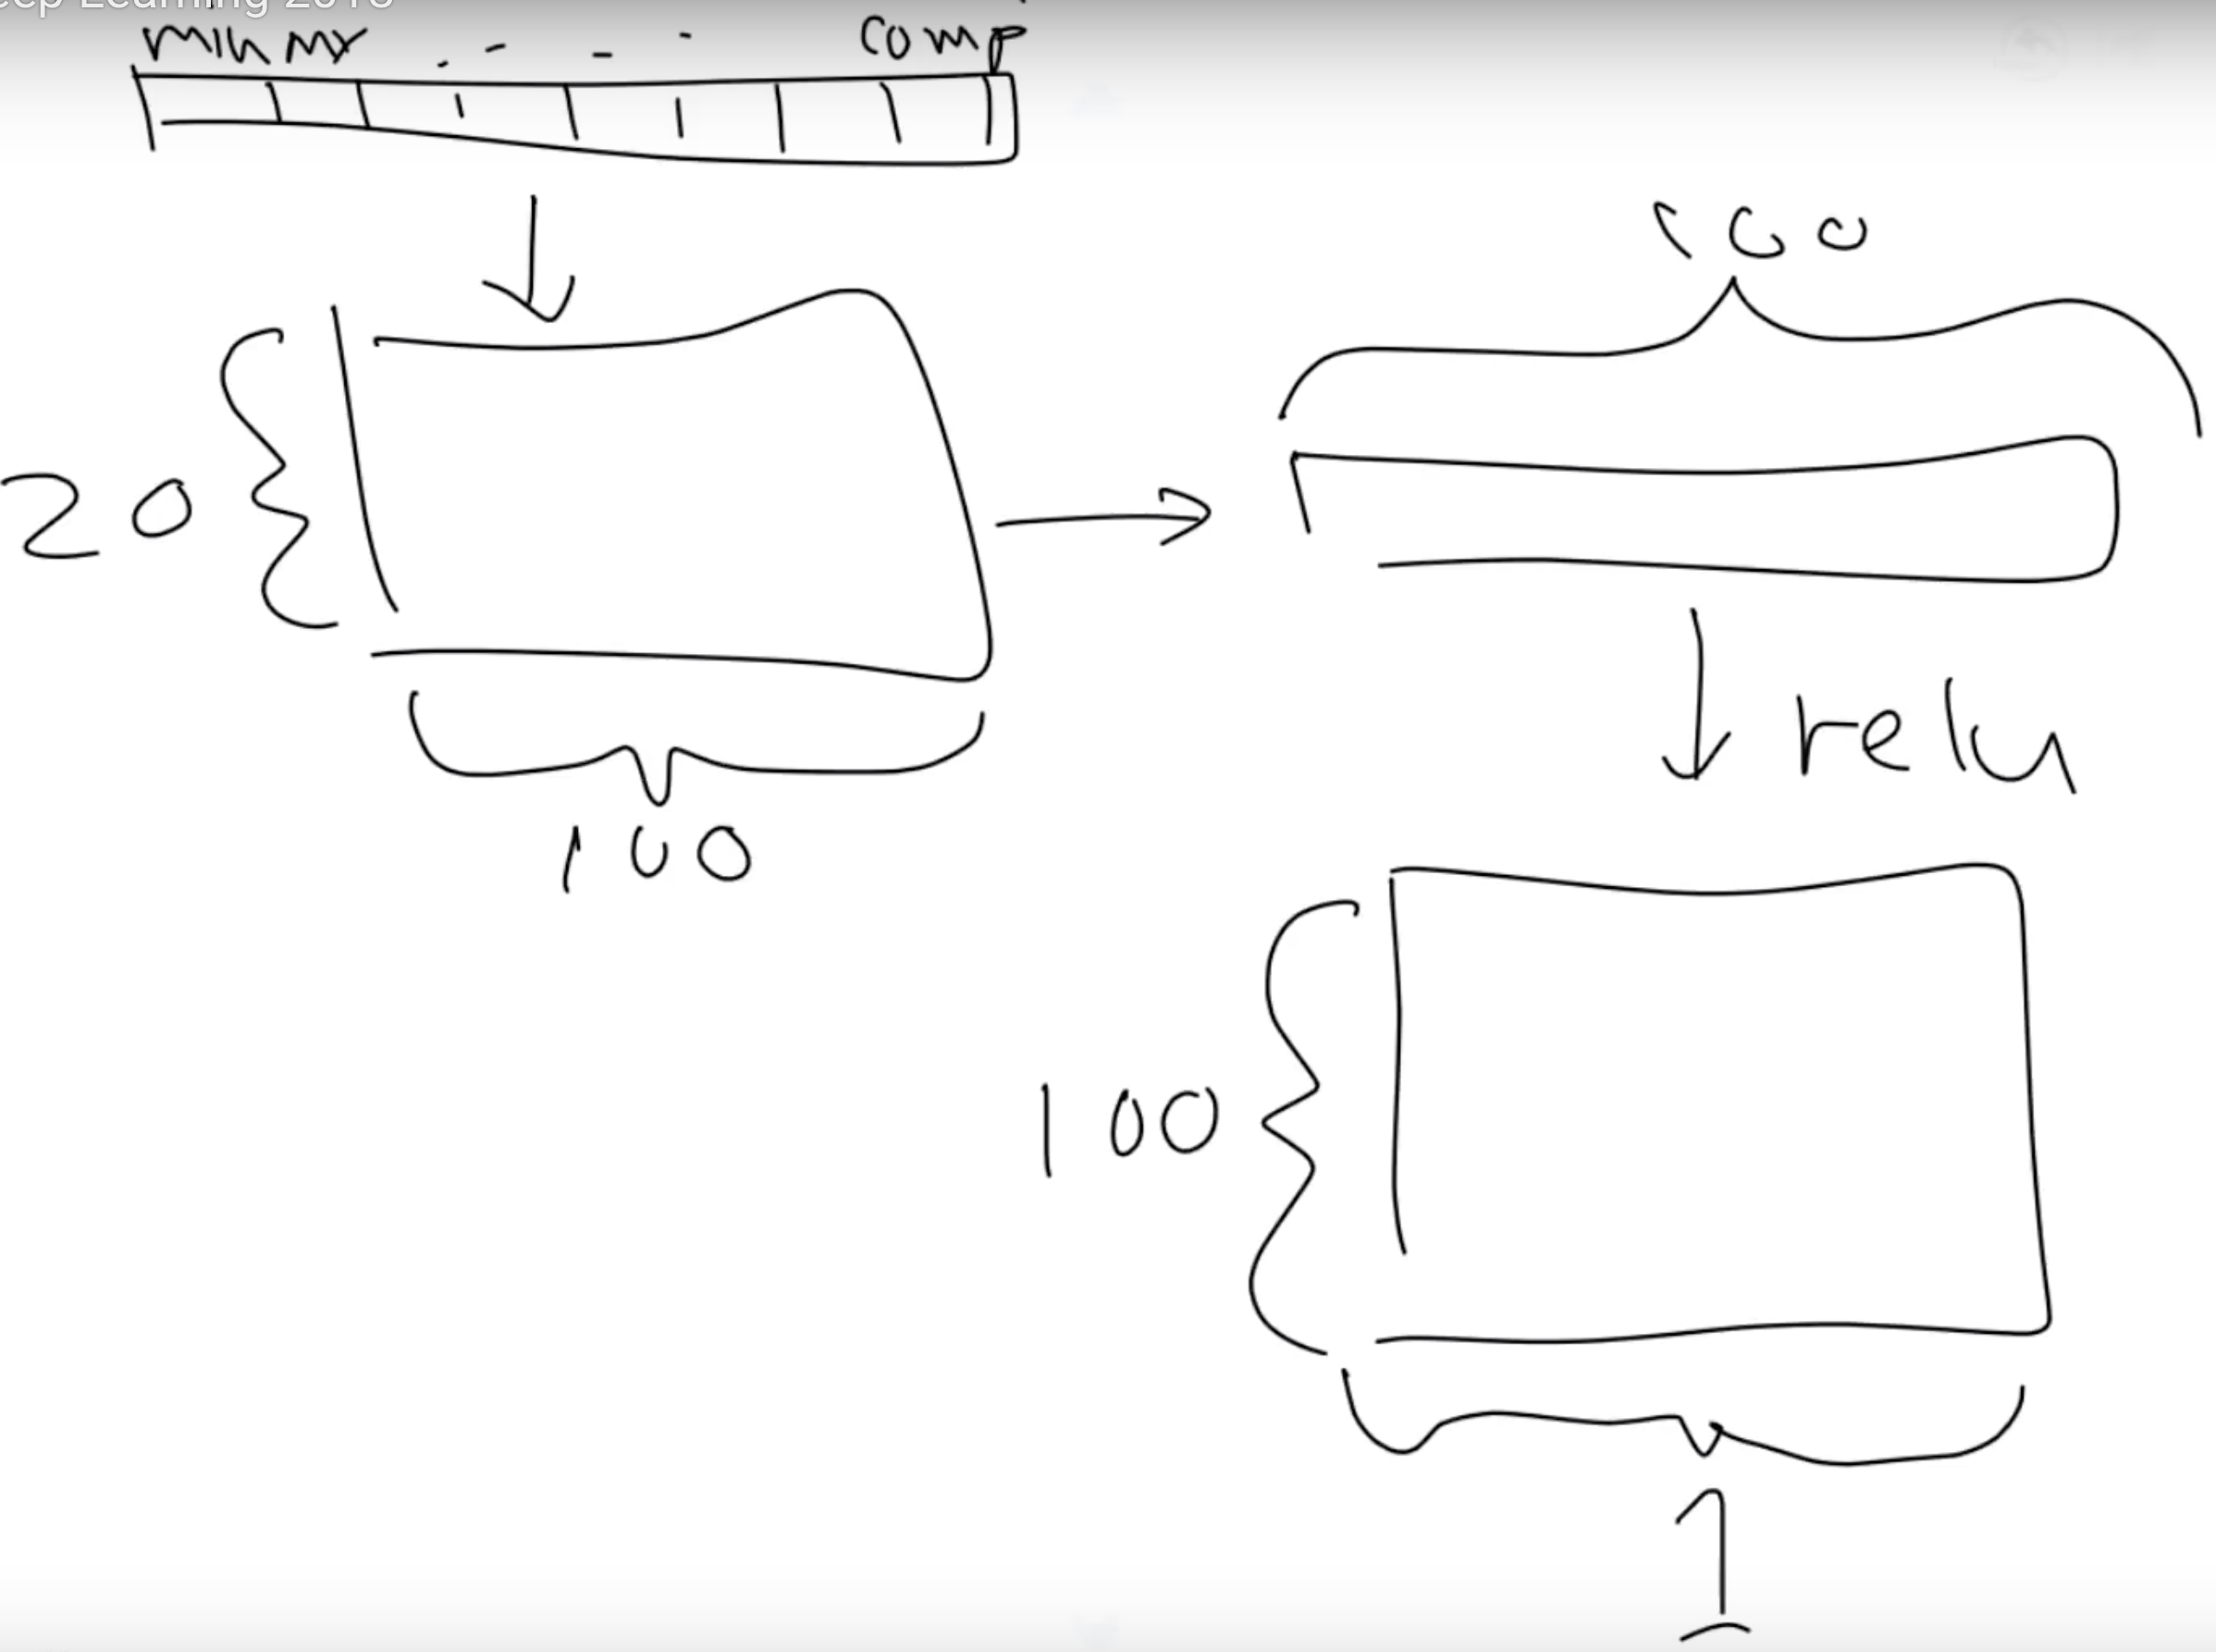 eep Learning 2018
min mx . - - - comp
100
20
relu
100
100
1